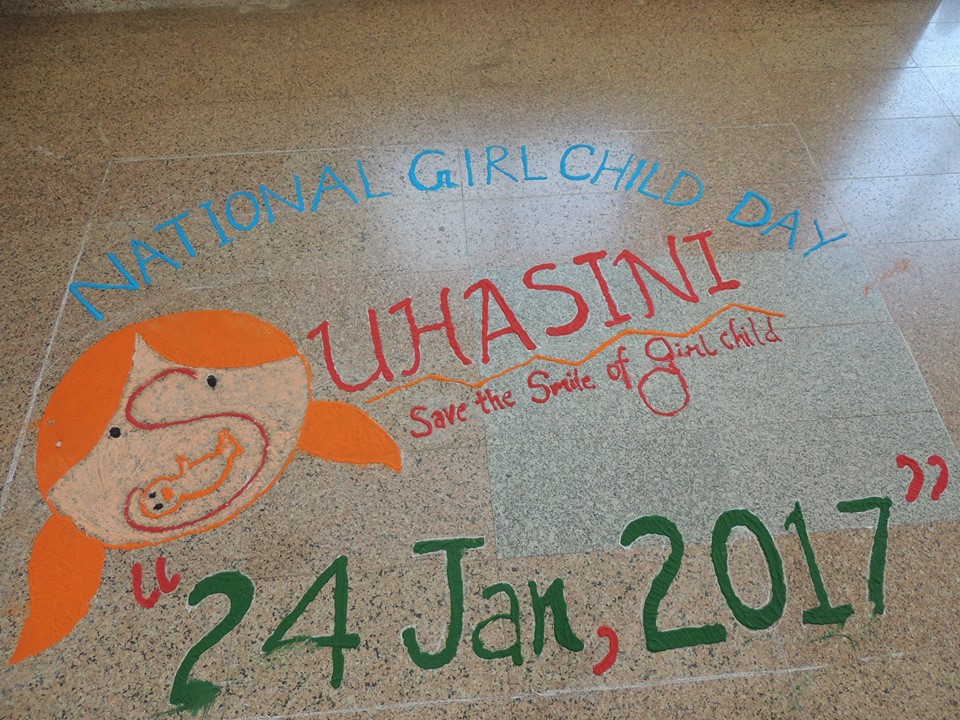 NATIONAL GIRL CHILD DAY
SUHASINI
Save the Smile of girl child
“24 Jan, 2017”